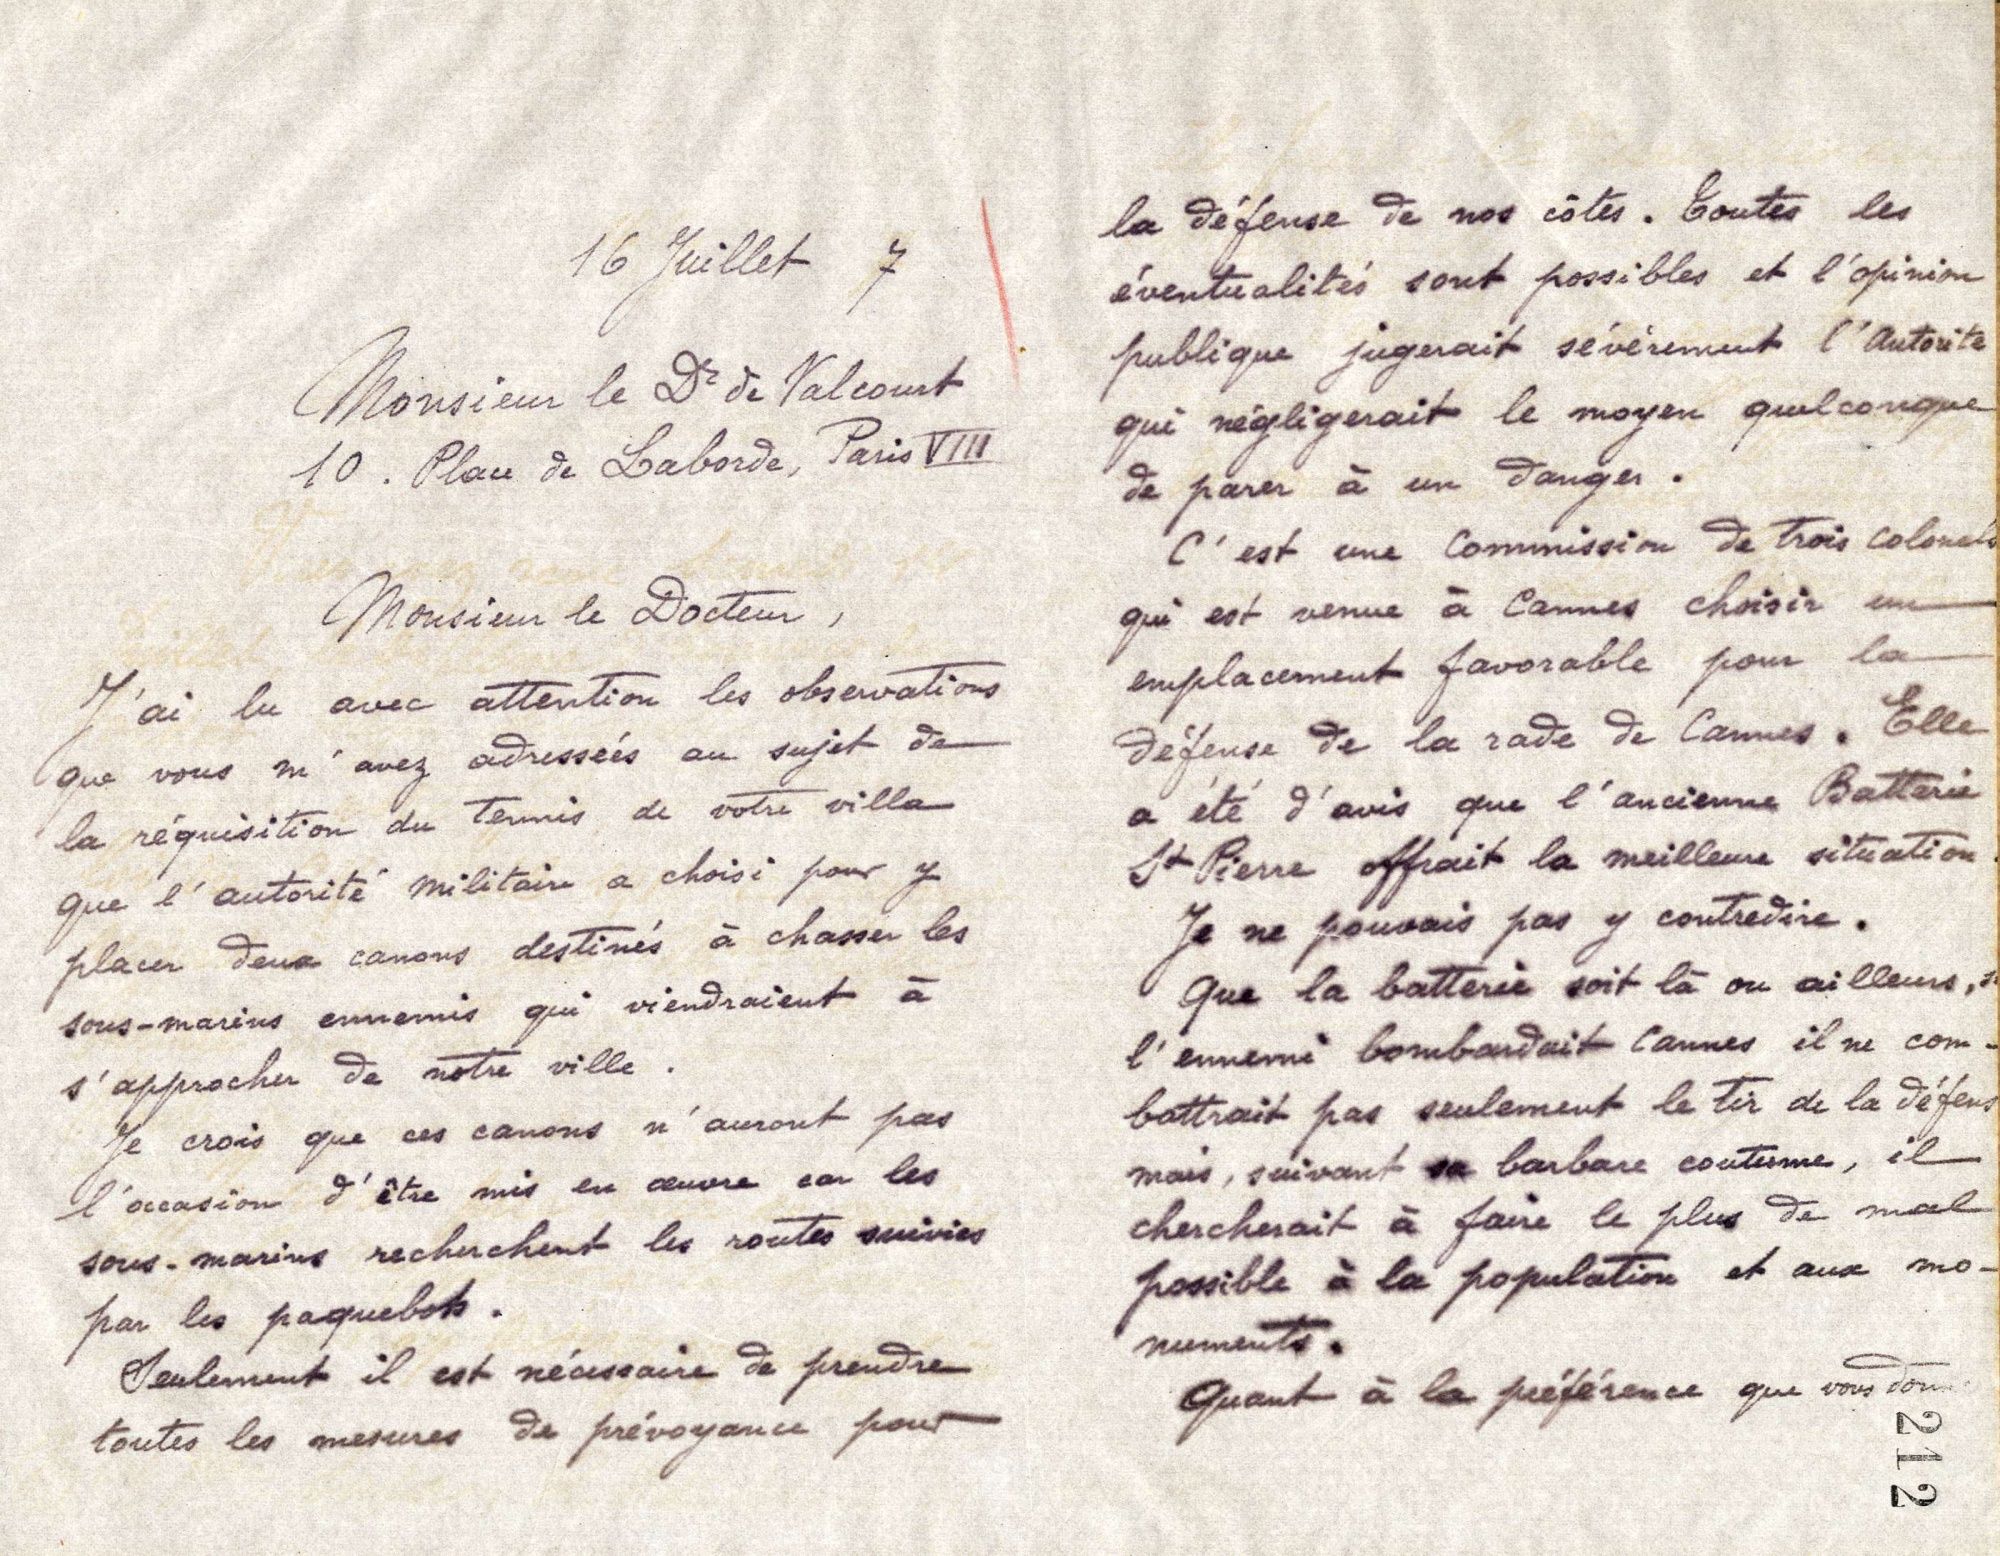 16 Juillet 7
Monsieur le Dr de Valcourt
10. Place de Laborde, Paris VIII
Monsieur le Docteur,
J'ai lu avec attention les observations
que vous m'avez adressées au sujet de
la réquisition du tennis de votre villa
que l'autorité militaire a choisi pour y
placer deux canons destinés à chasser les
sous-marins ennemis qui viendraient à
s'approcher de notre ville.
Je crois que ces canons n'auront pas
l'occasion d'être mis en œuvre car les
sous-marins recherchent les routes suivies
par les paquebots.
Seulement il est nécessaire de prendre
toutes les mesures de prévoyance pour
la défense de nos côtes. Toutes les
éventualités sont possibles et l'opinion
publique jugerait sévèrement l'Autorité
qui négligerait le moyen quelconque
de parer à un danger.
C'est une Commission de trois colonels
qui est venue à Cannes choisir un
emplacement favorable pour la
défense de la rade de Cannes. Elle
a été d'avis que l'ancienne Batterie
St Pierre offrait la meilleure situation.
Je ne pouvais pas y contredire.
Que la batterie soit là ou ailleurs, si
l'ennemi bombardait Cannes il ne com-
battrait pas seulement le tir de la défens
mais, suivant sa barbare coutume, il
chercherait à faire le plus de mal
possible à la population et aux mo-
numents.
Quant à la préférence que vous
212